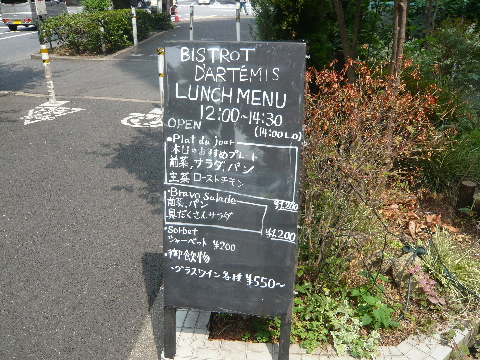 BISTROT
D'ARTÉMIS
LUNCH MENU
12:00~14:30
OPEN
(14:00 L.O)
•Plat du jour
本日のおすすめプレート
前菜,サラダ,パン
主菜 ローストチキン
¥1,200
•Bravo Salade
前菜,パン
具だくさんサラダ
¥1,200
•Sorbet
シャーベット ¥200
•御飲物
•グラスワイン各種 ¥550~